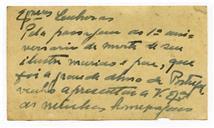 Exmas Senhoras
Pela passagem do 1º ani-
versario da morte de seu
ilustre marido e pae, que
foi a grande alma de Portugal
venho apresentar a V. Exas
as minhas homenagens